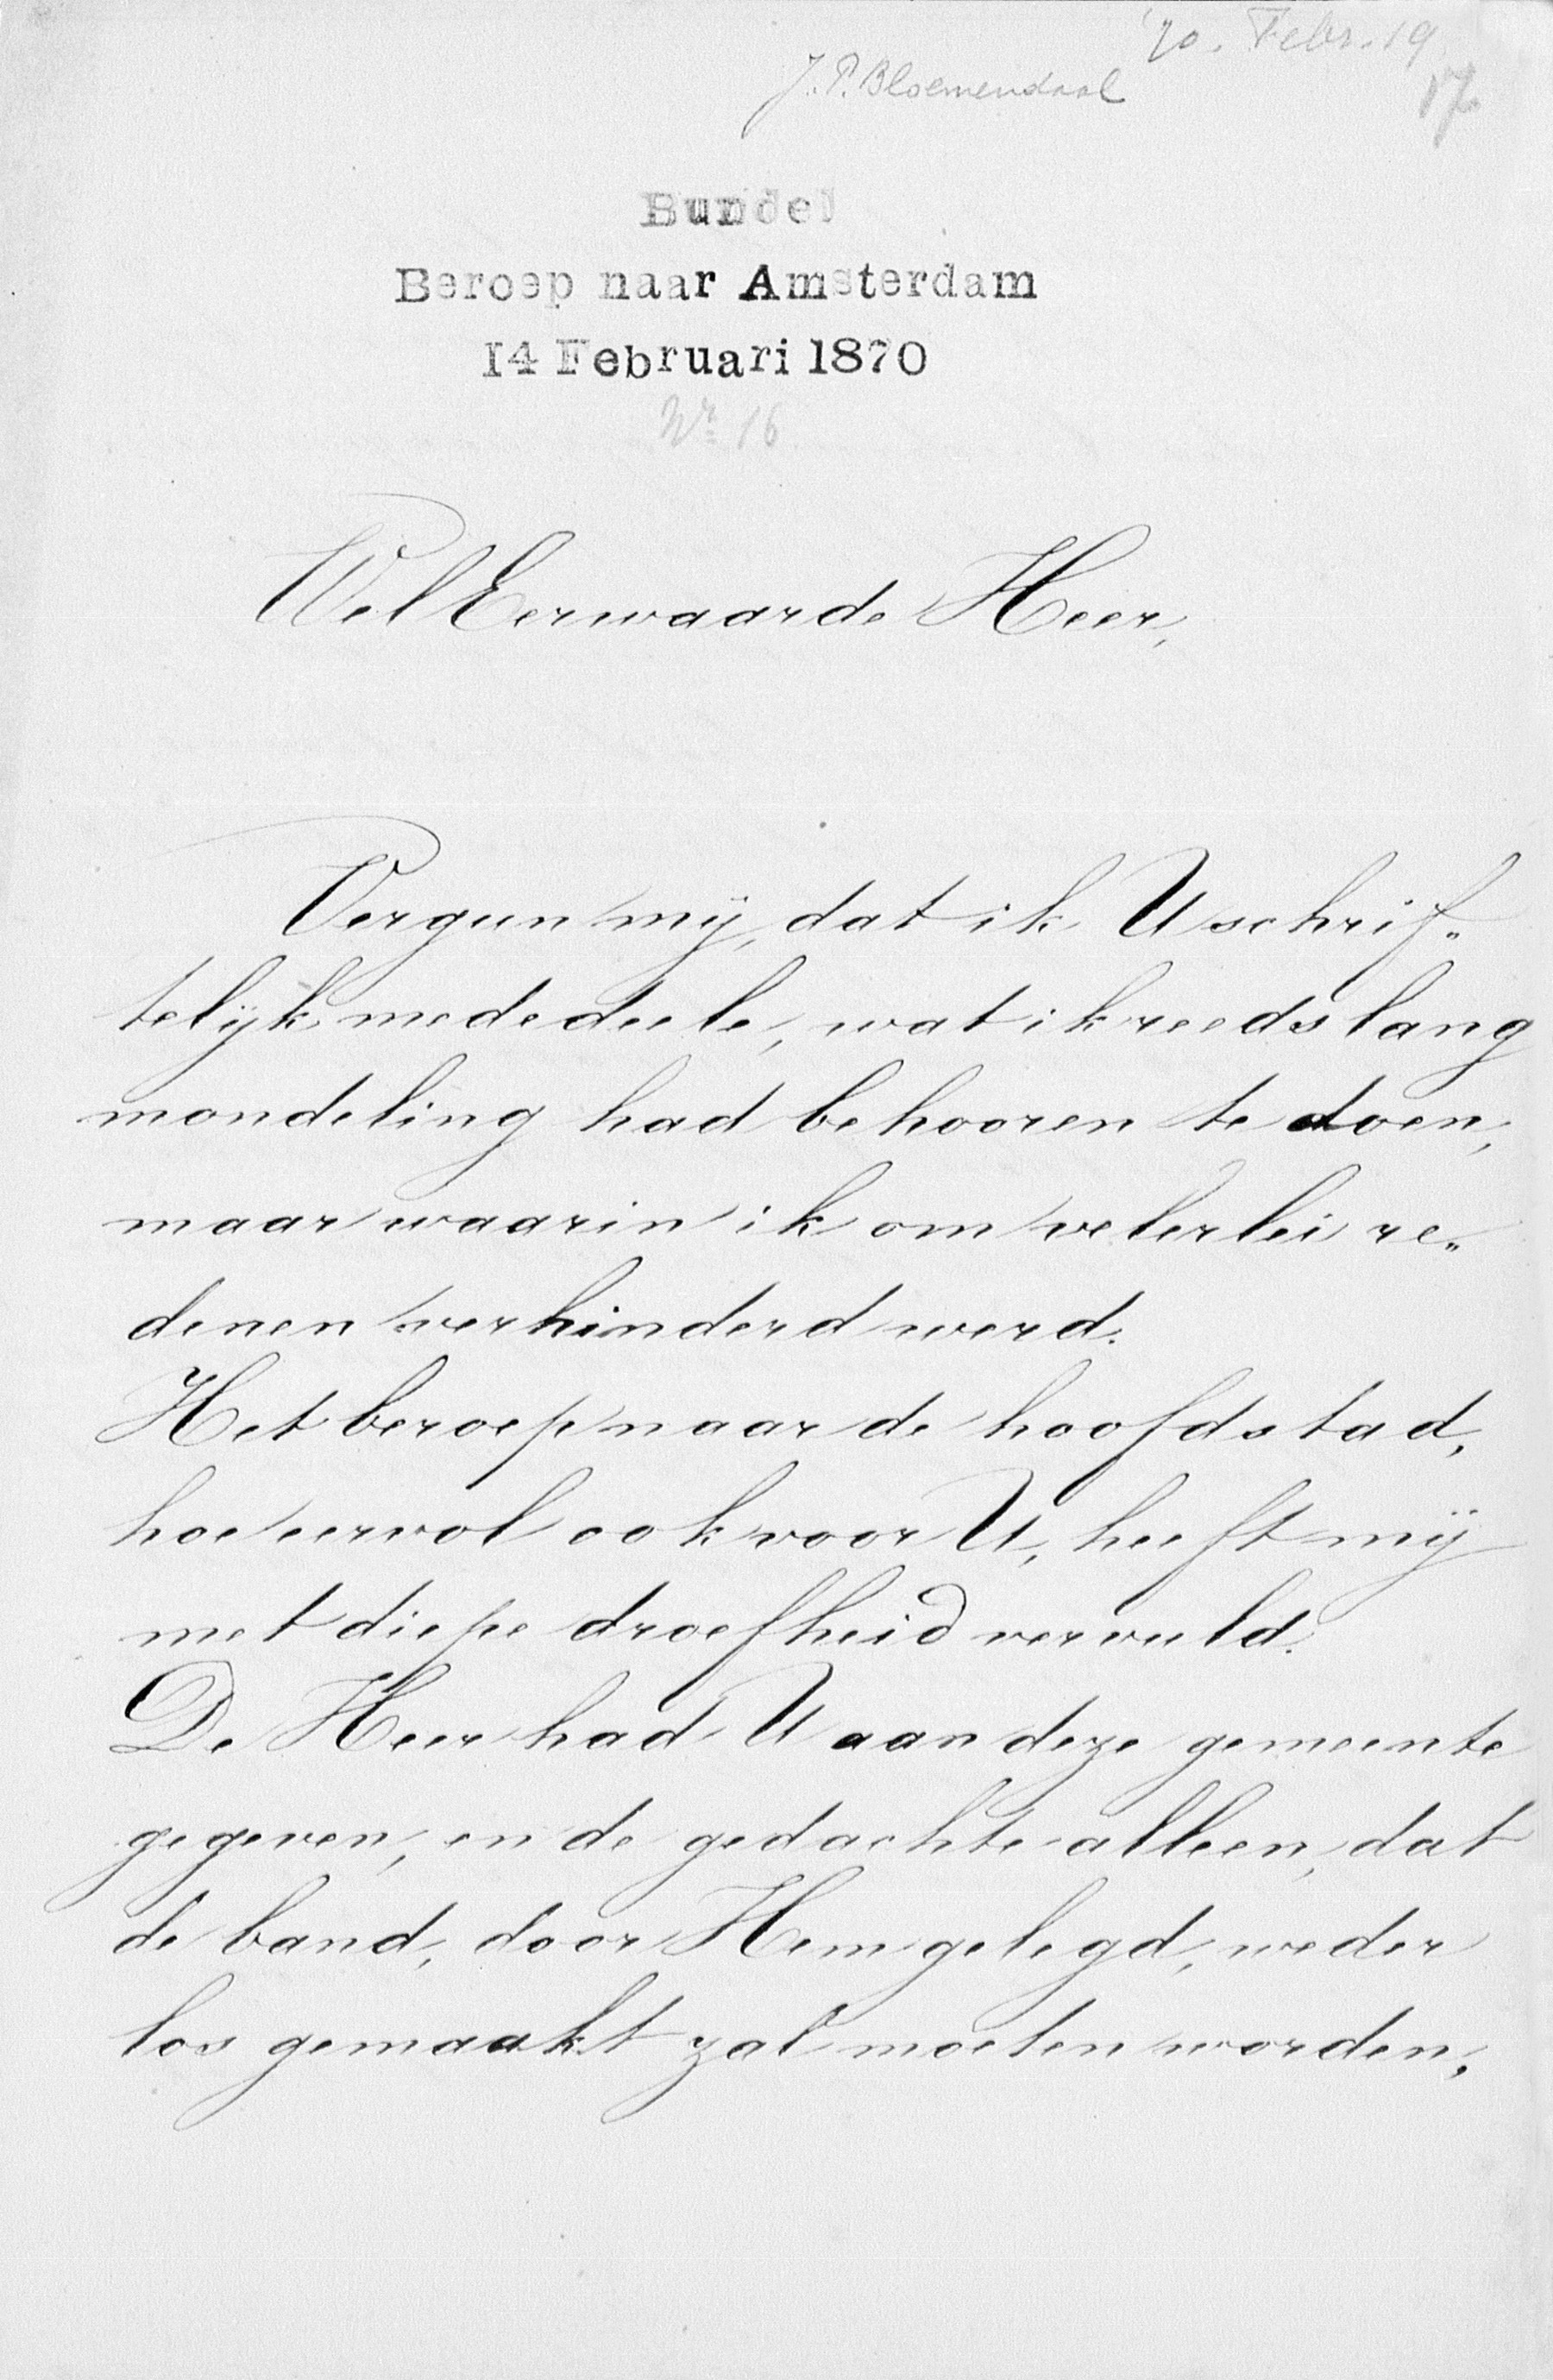 '70. Febr. 19
J. P. Bloemendaal
17
Bundel
Beroep naar Amsterdam
14 Februari 1870
Nr 16
WelEerwaarde Heer,
Vergun mij, dat ik U schrif„
telijk mededeele, wat ik reeds lang
mondeling had behooren te doen,
maar waarin ik om velerlei re„
denen verhinderd werd.
Het beroep naar de hoofdstad,
hoe eervol ook voor U, heeft mij
met diepe droefheid vervuld.
De Heer had U aan deze gemeente
gegeven, en de gedachte alleen, dat
de band, door Hem gelegd, weder
los gemaakt zal moeten worden,